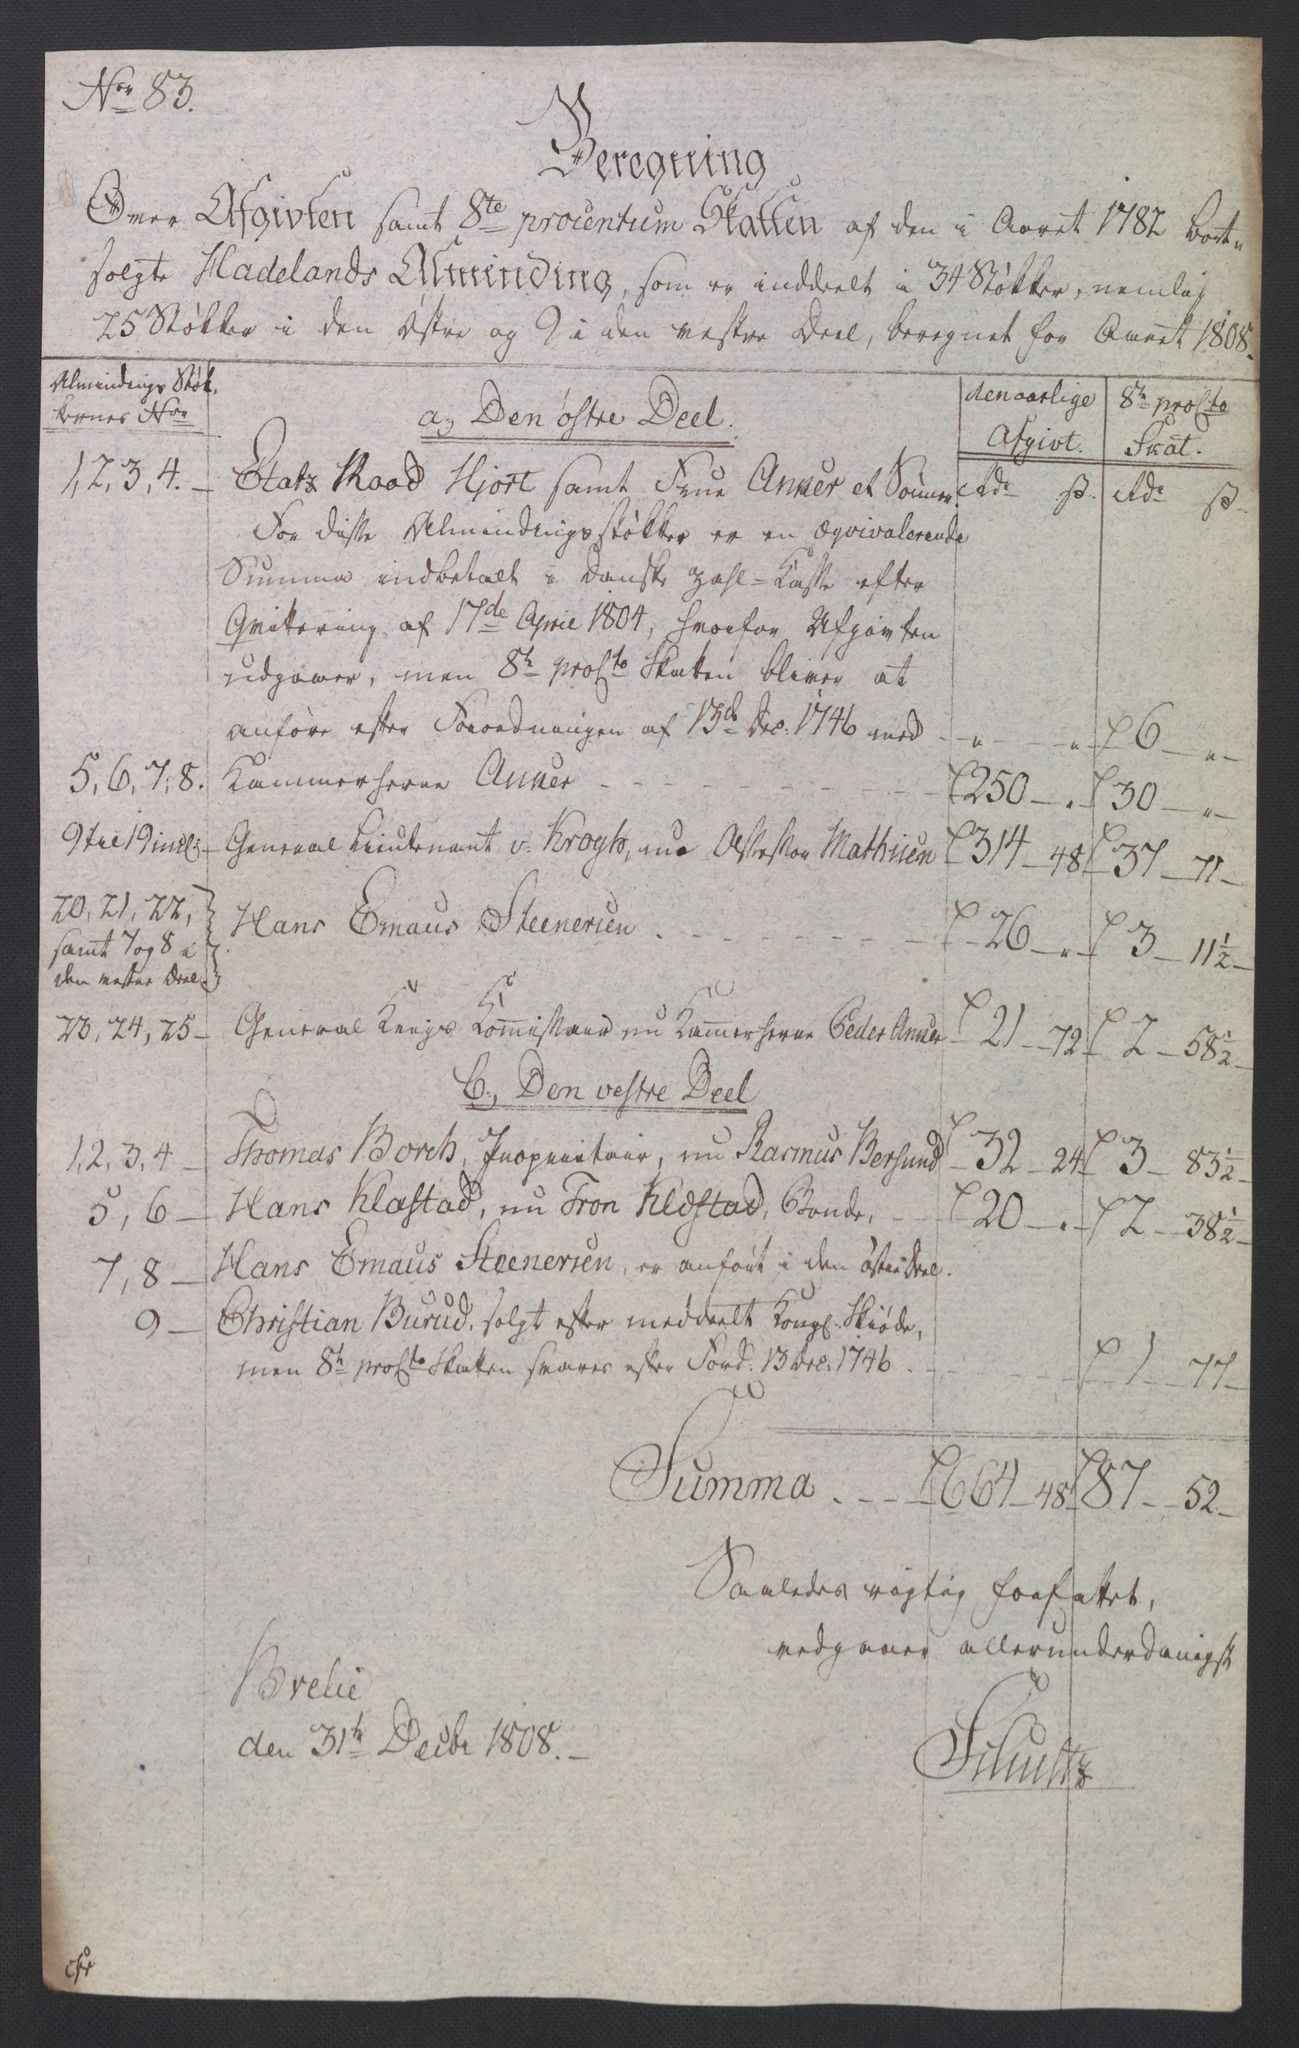 Nor 83.
Beregning
Over Afgivten samt 8te procentum Skatten af den i Aaret 1782 bort-
solgte Hadelands Alminding, som er inddeelt i 34 Støkker, nemlig
25 Støkker i den østre og 9 i den vestre Deel, beregnet for Aaret 1808.
Almindings Støk- kernes Nor
a, Den østre Deel.
den aarlige Afgivt.
8te proCto Skat.
1, 2, 3, 4. Etatz Raad Hjort samt Frue Anker et Sønner. Rdr ß. Rdr ß.
For disse Almindingsstøkker er en æqvivalerende
Summa indbetalt i danske Zahl-Kasse efter
Qvittering af 17de April 1804, hvorfor Afgivten
udgaaer, men 8te proCto Skatten bliver at
anføre efter Forordningen af 13de Dec: 1746 med - " - " 6 - "
5, 6, 7, 8. Kammerherre Anker 250 - " 30 - "
9 til 19 incl: General Lieutenant v. Krogh, nu Assessor Mathiesen 314 - 48 37 - 71
20, 21, 22, samt 7 og 8 i den vestre Deel. Hans Emaus Steenersen 26 - " 3 - 11½
23, 24, 25 - General Krigs Kommissair nu Kammerherre Peder Anker 21 - 72 2 - 58½
b, Den vestre Deel
1, 2, 3, 4 - Thomas Borch, Proprietair, nu Rasmus Bersund 32 - 24 3 - 83½
5, 6 - Hans Klæstad, nu Tron Klæstad, Bonde, 20 - " 2 - 38½
7, 8 - Hans Emaus Steenersen, er anført i den østre Deel.
9 - Christian Burud, solgt efter meddeelt Kongl. Skiøde,
men 8te proCto Skatten svares efter Ford: 13 Dec: 1746 1 - 77
Summa 664 - 48 87 - 52
Saaledes rigtig forfattet,
vedgaaer allerunderdanigst
Brelie
den 31te Decbr 1808.
Schultz